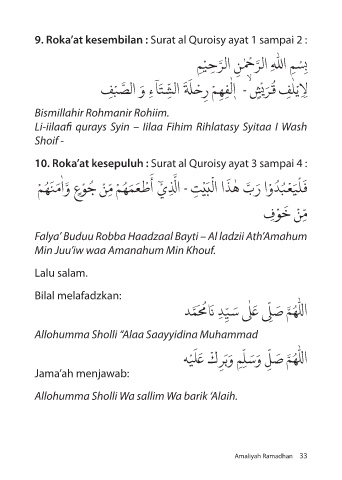 9. Roka’at kesembilan : Surat al Quroisy ayat 1 sampai 2 :
بِسْمِ اللهِ الرَّحْمٰنِ الرَّحِيْمِ
لِاِيْلٰفِ قُرَيْشٍۙ - اٖلٰفِهِمْ رِحْلَةَ الشِّتَاۤءِ وَ الصَّيْفِ
Bismillahir Rohmanir Rohiim.
Li-iilaafi qurays Syin – Iilaa Fihim Rihlatasy Syitaa I Wash
Shoif -
10. Roka’at kesepuluh : Surat al Quroisy ayat 3 sampai 4 :
فَلْيَعْبُدُوْا رَبَّ هٰذَا الْبَيْتِ - الَّذِيْٓ أَطْعَمَهُمْ مِّنْ جُوْعٍ وَّاٰمَنَهُمْ
مِّنْ خَوْفٍ
Falya’ Buduu Robba Haadzaal Bayti – Al ladzii Ath’Amahum
Min Juu’iw waa Amanahum Min Khouf.
Lalu salam.
Bilal melafadzkan:
اللّٰهُمَّ صَلِّ عَلٰى سَيِّدِنَا مُحَمَّد
Allohumma Sholli “Alaa Saayyidina Muhammad
اللّٰهُمَّ صَلِّ وَسَلِّمْ وَبَرِكْ عَلَيْه
Jama’ah menjawab:
Allohumma Sholli Wa sallim Wa barik ‘Alaih.
Amaliyah Ramadhan 33